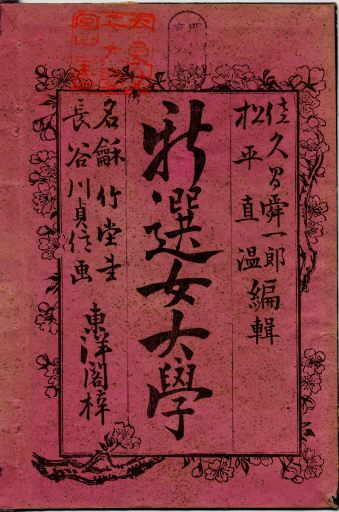 佐久間舜一郎
松平直温編輯
新選女大學
名龢竹堂書
長谷川貞信画
東洋閣梓